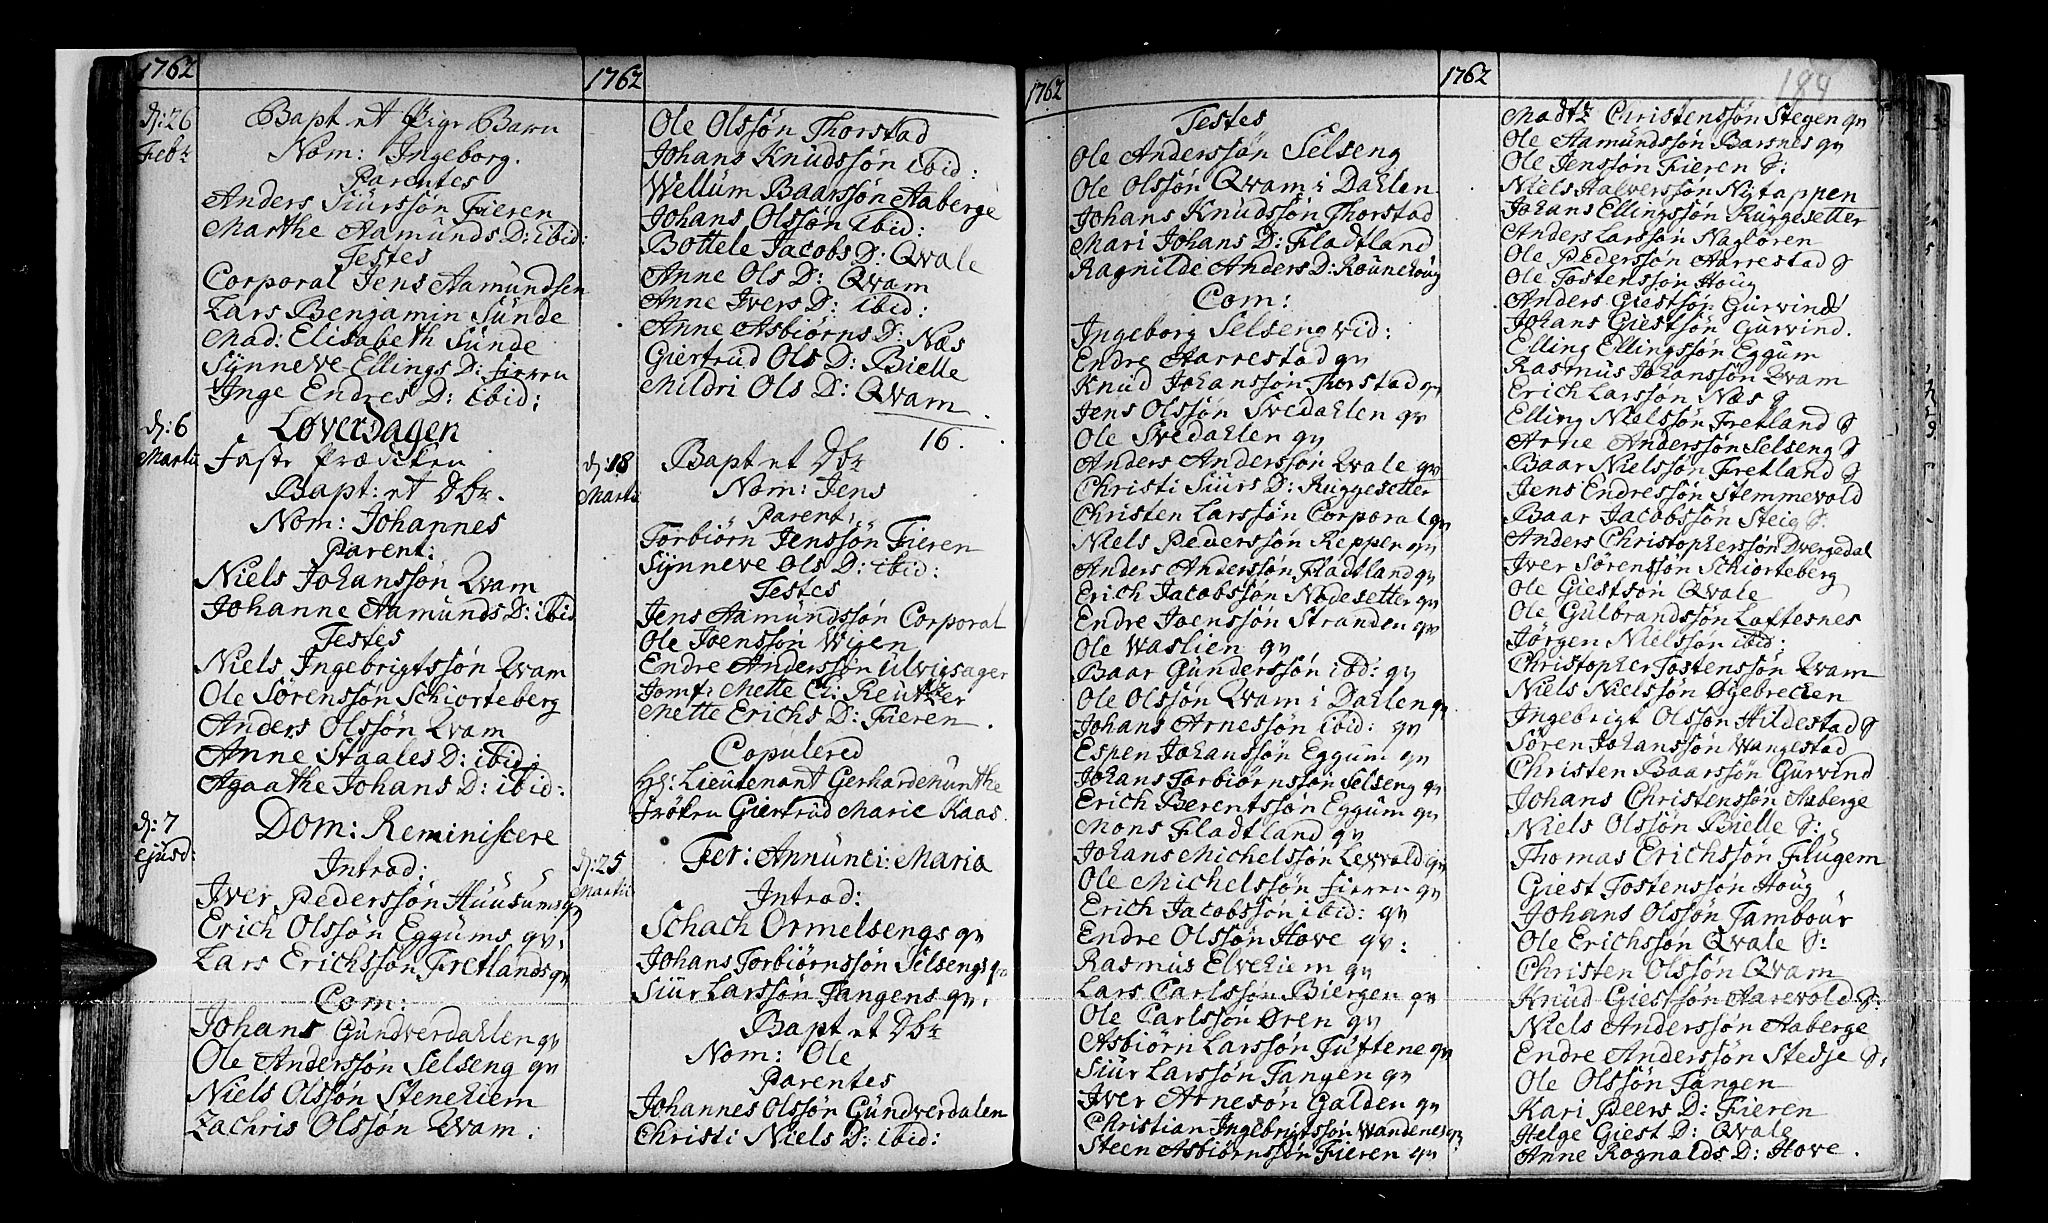 1762
d: 26
Febr
Bapt et Pige Barn
Nom: Ingeborg.
Parentes
Anders Siurssøn Fieren
Marthe Aamunds D: ibid:
Testes
Corporal Jens Aamundsen
Lars Benjamin Sunde
Mad: Elisabeth Sunde
Synneve Ellings D: Fieren
Inge Endres D: ibid:
d: 6
Martii
Løverdagen
Faste Prædiken
Bapt: et Dbr.
Nom: Johannes
Parent:
Niels Johanssøn Qvam
Johanne Aamunds D: ibid
Testes
Niels Ingebrigtssøn Qvam
Ole Sørenssøn Schiorteberg
Anders Olssøn Qvam
Anne Staales D: ibid:
Agaathe Johans D: ibid:
d: 7
ejusd:
Dom: Reminiscere
Introd:
Iver Pederssøn Huusums qv
Erich Olssøn Eggums qv:
Lars Erichssøn Fretlands qv
Com:
Johans Gundverdahlen qv
Ole Anderssøn Selseng qv
Niels Olssøn Stenehiem
Zachris Olssøn Qvam:
1762
Ole Olssøn Thorstad
Johans Knudssøn ibid:
Wellum Baarssøn Aaberge
Johans Olssøn ibid:
Bottele Jacobs D: Qvale
Anne Ols D: Qvam
Anne Ivers D: ibid:
Anne Asbiørns D: Næs
Giertrud Ols D: Bielle
Mildri Ols D: Qvam
16.
d: 18
Martii
Bapt et Dbr
Nom: Jens
Parent:
Torbiørn Jenssøn Fieren
Synneve Ols D: ibid:
Testes
Jens Aamundssøn Corporal
Ole Joenssøn Wigen
Endre Anderssøn Ulvigsager
Jomf: Mette Cl: Reutzer
Mette Erichs D: Fieren.
Copulered
Hr: Lieutenant Gerhard Munthe
Frøken Giertrud Marie Kaas
d: 25
Martii
Fer: Annunci: Maria
Introd:
Schach Ormelsengs qv
Johans Torbiørnssøn Selsengs qv
Siur Larssøn Tangens qv.
Bapt et Dbr
Nom: Ole
Parentes
Johannes Olssøn Gundverdalen
Christi Niels D: ibid:
1762
Testes
Ole Anderssøn Selseng
Ole Olssøn Qvam i Dahlen
Johans Knudssøn Thorstad
Mari Johans D: Fladtland
Ragnilde Anders D: Rounehoug
Com:
Ingeborg Selseng vid:
Endre Aarrestad qv
Knud Johanssøn Thorstad qv
Jens Olssøn Svedahlen qv
Ole Svedahlen qv
Anders Anderssøn Qvale qv
Christi Siurs D: Ruggesetter
Christen Larssøn Corporal qv
Niels Pederssøn Reppen qv
Anders Anderssøn Fladtland qv
Erich Jacobssøn Nødesetter qv
Endre Joenssøn Stranden qv
Ole Waslien qv
Baar Gunderssøn ibd: qv
Ole Olssøn Qvam i Dahlen qv
Johans Arnessøn ibid: qv
Espen Johanssøn Eggum qv
Johans Torbiørnssøn Selseng qv
Erich Berentssøn Eggum qv
Mons Fladtland qv
Johans Michelssøn Lewold qv
Ole Michelssøn Fieren qv
Erich Jacobssøn ibid: qv
Endre Olssøn Hove qv:
Rasmus Elvehiem qv
Lars Carlssøn Biergen qv
Ole Carlssøn Øren qv
Asbiørn Larssøn Tuftene qv
Siur Larssøn Tangen qv
Iver Arnesøn Galden qv
Christian Ingebrigtssøn Wandenes qv
Steen Asbiørnssøn Fieren qv
1762
184
Madtz Christenssøn Stegen qv
Ole Aamundssøn Barsnes qv
Ole Jenssøn Fieren S:
Niels Aalverssøn Nytappen
Johans Ellingssøn Ruggesetter
Anders Larssøn Nagløren
Ole Pederssøn Aarrestad S
Ole Tostenssøn Houg
Anders Giestsøn Gurvind
Johans Giestsøn Gurvind.
Elling Ellingssøn Eggum
Rasmus Johanssøn Qvam
Erich Larssøn Næs S
Elling Nielssøn Fretland S
Arne Anderssøn Selseng S
Baar Nielssøn Fretland S
Jens Endressøn Stemmevold
Baar Jacobssøn Steig S:
Anders Christopherssøn Dvergedal
Iver Sørenssøn Schiorteberg
Ole Giestsøn Qvale
Ole Gulbrandssøn Loftesnes
Jørgen Nielssøn ibid:
Christopher Tostenssøn Qvam
Niels Nielssøn Øgebrecken
Ingebrigt Olssøn Hildestad S
Søren Johanssøn Wangestad
Christen Baarssøn Gurvind
Johans Christenssøn Aaberge
Niels Olssøn Bielle S:
Thomas Erichssøn Flugem
Giest Tostenssøn Houg
Johans Olssøn Tambour
Ole Erichssøn Qvale S:
Christen Olssøn Qvam
Knud Giestssøn Aarevold S:
Niels Anderssøn Aaberge
Endre Anderssøn Stedje S:
Ole Olssøn Tangen
Kari Peers D: Fieren
Helge Giest D: Qvale
Anne Rognalds D: Hove.